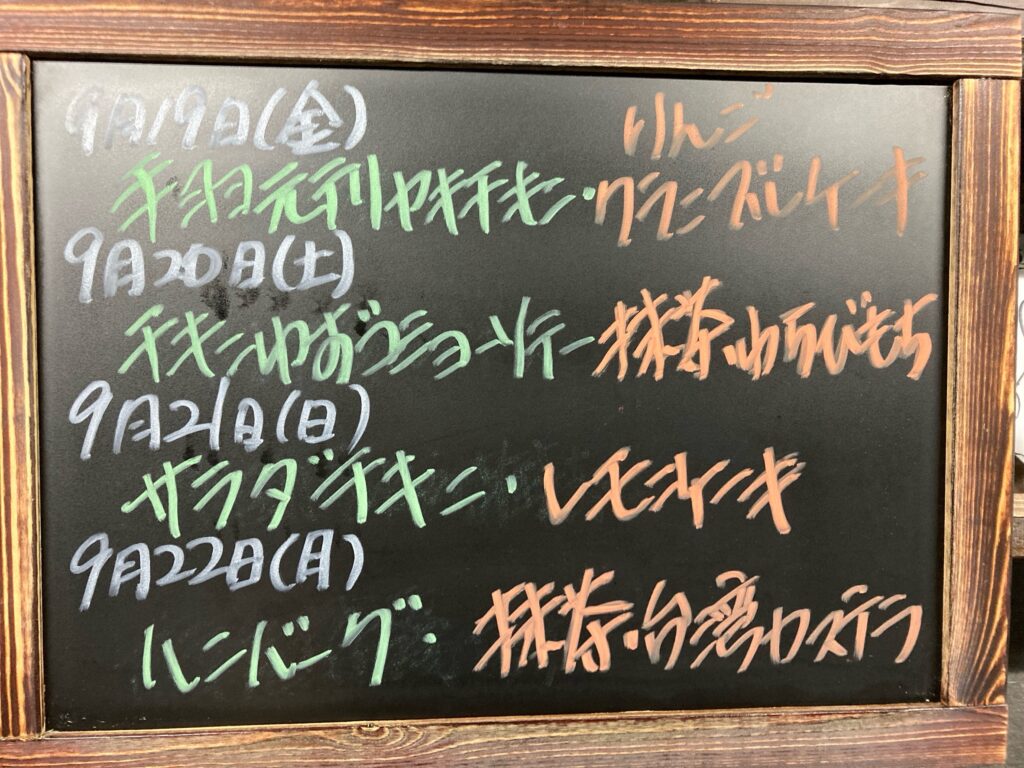 9月19日(金) りんご
テリヤキチキン・クランブルケーキ
9月20日(土)
抹茶わらびもち
9月21日(日)
サラダチキン・レモンケーキ
9月22日(月)
ハンバーグ・抹茶台湾カステラ